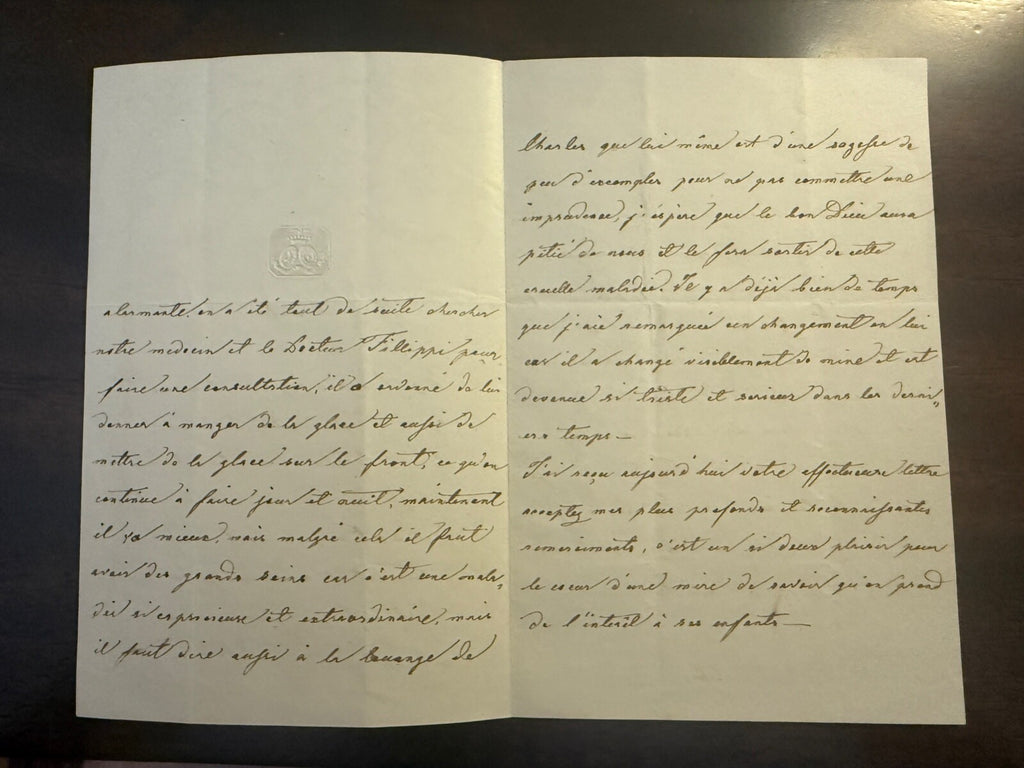 alarmante, on a été tout de suite chercher
notre medecin et le Docteur Fillippi pour
faire une consultation, il a ordonné de lui
donner à manger de la glace et aussi de
mettre de la glace sur le front, ce qu'on
continue à faire jour et nuit, maintenant
il va mieux, mais malgré cela il faut
avoir des grands soins car c'est une mala„
die si capricieuse et extraordinaire, mais
il faut dire aussi à la louange de
Charles que lui même est d'une sagesse de
peu d'exemples pour ne pas commettre une
imprudence, j'éspère que le bon Dieu aura
pitié de nous et le fera sortir de cette
cruelle maladie. Il y a déjà bien de temps
que j'aie remarquée un changement en lui
car il a changé visiblement de mine et est
devenue si triste et serieux dans les derni„
ers temps —
J'ai reçu aujourd'hui votre affectueuse lettre
acceptez mes plus profonds et reconnaissantes
remerciments, c'est un si doux plaisir pour
le coeur d'une mère de savoir qu'on prend
de l'intérêt à ses enfants —